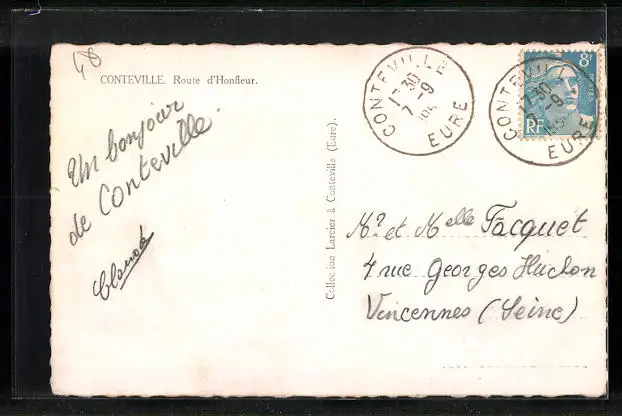 48
CONTEVILLE. Route d'Honfleur.
Un bonjour
de Conteville.
Claude
Collection Larcier à Conteville (Eure).
CONTEVILLE
17 30
7 -9
195
EURE
8F
POSTES
RF
CONTEVILLE
17 30
-9
195
EURE
Mr et Melle Facquet
4 rue Georges Huchon
Vincennes (Seine)